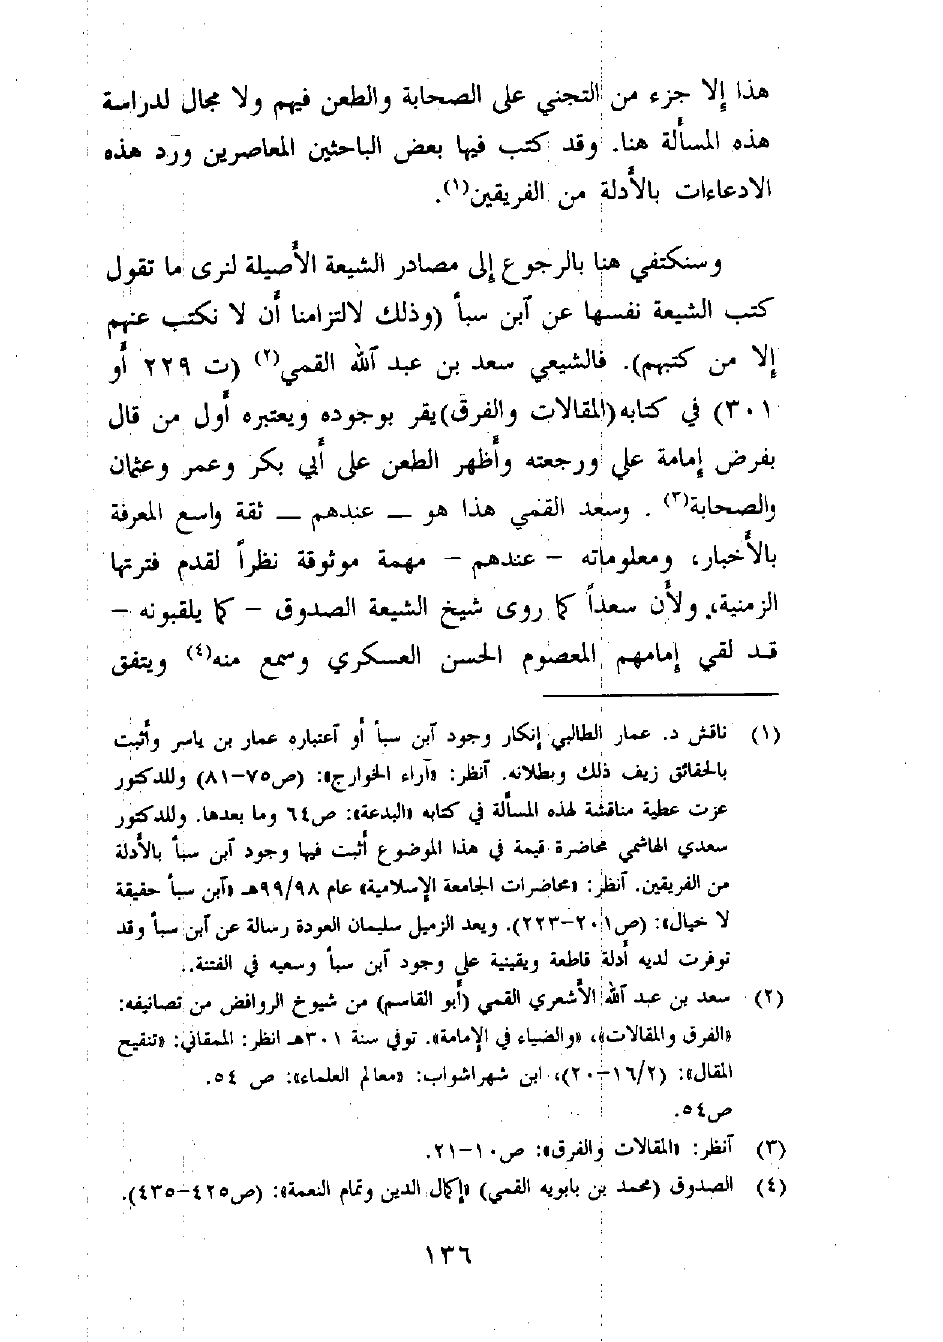 هذا إلا جزء من التجني على الصحابة والطعن فيهم ولا مجال لدراسة
هذه المسألة هنا. وقد كتب فيها بعض الباحثين المعاصرين ورَد هذه
الادعاءات بالأدلة من الفريقين(١).
وسنكتفي هنا بالرجوع إلى مصادر الشيعة الأصيلة لنرى ما تقول
كتب الشيعة نفسها عن آبن سبأ (وذلك لالتزامنا أن لا نكتب عنهم
إلا من كتبهم). فالشيعي سعد بن عبد آلله القمي(٢) (ت ٢٢٩ أو
٣٠١) في كتابه (المقالات والفرق) يقر بوجوده ويعتبره أول من قال
بفرض إمامة علي ورجعته وأظهر الطعن على أبي بكر وعمر وعثمان
والصحابة(٣). وسعد القمي هذا هو — عندهم — ثقة واسع المعرفة
بالأخبار، ومعلوماته - عندهم - مهمة موثوقة نظراً لقدم فترتها
الزمنية، ولأن سعداً كما روى شيخ الشيعة الصدوق - كما يلقبونه -
قد لقي إمامهم المعصوم الحسن العسكري وسمع منه(٤) ويتفق
(١) ناقش د. عمار الطالبي إنكار وجود آبن سبأ أو آعتباره عمار بن ياسر وأثبت
بالحقائق زيف ذلك وبطلانه. آنظر: «آراء الخوارج»: (ص٧٥-٨١) وللدكتور
عزت عطية مناقشة لهذه المسألة في كتابه «البدعة»: ص٦٤ وما بعدها. وللدكتور
سعدي الهاشمي محاضرة قيمة في هذا الموضوع أثبت فيها وجود آبن سبأ بالأدلة
من الفريقين. آنظر: «محاضرات الجامعة الإسلامية» عام ٩٩/٩٨هـ «آبن سبأ حقيقة
لا خيال»: (ص٢٠١-٢٢٣). ويعد الزميل سليمان العودة رسالة عن آبن سبأ وقد
توفرت لديه أدلة قاطعة ويقينية على وجود آبن سبأ وسعيه في الفتنة..
(٢) سعد بن عبد آلله الأشعري القمي (أبو القاسم) من شيوخ الروافض من تصانيفه:
«الفرق والمقالات»، «والضياء في الإمامة». توفي سنة ٣٠١هـ انظر: الممقاني: «تنقيح
المقال»: (١٦/٢-٢٠)، ابن شهراشواب: «معالم العلماء»: ص ٥٤.
ص٥٤.
(٣) آنظر: «المقالات والفرق»: ص١٠-٢١.
(٤) الصدوق (محمد بن بابويه القمي) «إكمال الدين وتمام النعمة»: (ص٤٢٥-٤٣٥).
١٣٦